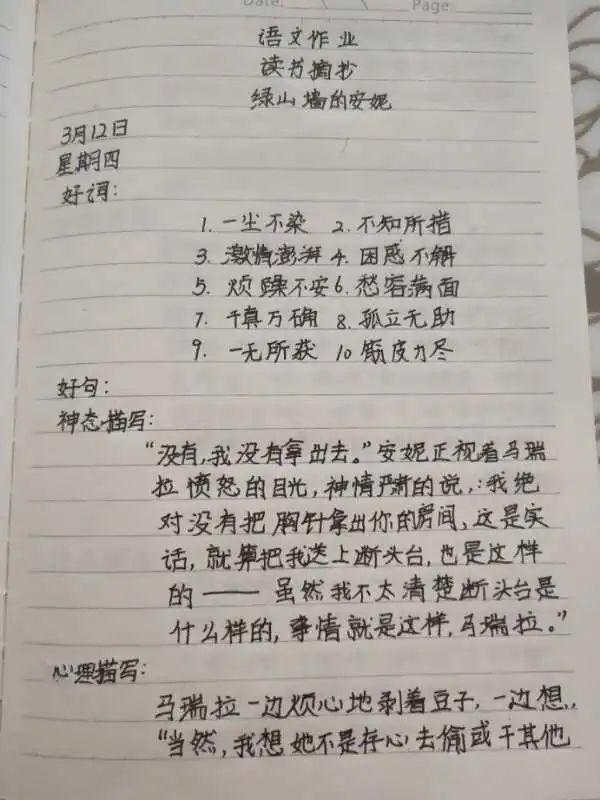 Date: Page:
语文作业
读书摘抄
绿山墙的安妮
3月12日
星期四
好词：
1. 一尘不染 2. 不知所措
3. 激情澎湃 4. 困惑不解
5. 烦躁不安 6. 愁容满面
7. 千真万确 8. 孤立无助
9. 一无所获 10 筋皮力尽
好句：
神态描写：
“没有，我没有拿出去。”安妮正视着马瑞
拉愤怒的目光，神情严肃的说，：我绝
对没有把胸针拿出你的房间，这是实
话，就算把我送上断头台，也是这样
的——虽然我不太清楚断头台是
什么样的，事情就是这样，马瑞拉。”
心理描写：
马瑞拉一边烦心地剥着豆子，一边想，
“当然，我想她不是存心去偷或干其他